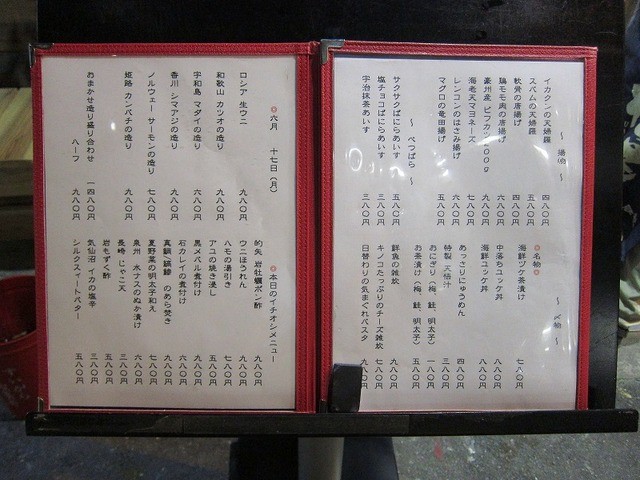 ～ 揚物 ～
イカゲソの天婦羅 四八〇円
スパムの天婦羅 五八〇円
軟骨の唐揚げ 四八〇円
鶏モモ肉の唐揚げ 六八〇円
豪州産 ビフカツ２００ｇ 九八〇円
海老天マヨネーズ 七八〇円
レンコンのはさみ揚げ 六八〇円
マグロの竜田揚げ 五八〇円
～ べつばら ～
サクサクばにらあいす 五八〇円
塩チョコばにらあいす 三八〇円
宇治抹茶あいす 三八〇円
～ 〆物 ～
◎名物◎
海鮮ヅケ茶漬け 七八〇円
中落ちユッケ丼 八八〇円
海鮮ユッケ丼 八八〇円
あっさりにゅうめん 四八〇円
特製 天橋汁 三八〇円
おにぎり（梅 鮭 明太子） 一八〇円
お茶漬け（梅 鮭 明太子） 五八〇円
鮮魚の雑炊 九八〇円
キノコたっぷりのチーズ雑炊 七八〇円
日替わりの気まぐれパスタ 九八〇円
◎六月 十七日（月） ◎本日のイチオシメニュー
ロシア 生ウニ 九八〇円
和歌山 カツオの造り 九八〇円
宇和島 マダイの造り 六八〇円
香川 シマアジの造り 九八〇円
ノルウェー サーモンの造り 七八〇円
姫路 カンパチの造り 九八〇円
おまかせ造り盛り合わせ 一四八〇円
ハーフ 九八〇円
的矢 岩牡蠣ポン酢 九八〇円
ウニほうれん 九八〇円
ハモの湯引き 七八〇円
アユの焼き浸し 五八〇円
黒メバル煮付け 九八〇円
石カレイの煮付け 六八〇円
真鯛のあら焚き 九八〇円
夏野菜の明太子和え 七八〇円
泉州 水ナスのぬか漬け 六八〇円
長崎 じゃこ天 三八〇円
岩もずく酢 五八〇円
気仙沼 イカの塩辛 三八〇円
シルクスイートバター 五八〇円